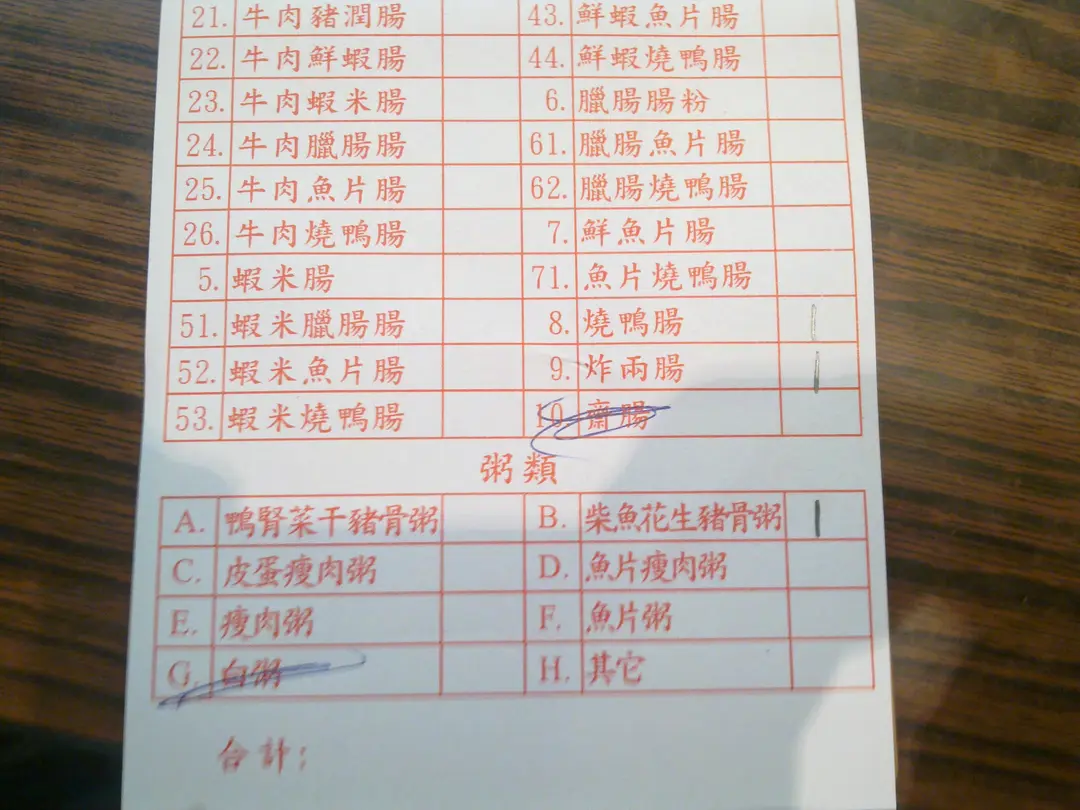 21. 牛肉豬潤腸 43. 鮮蝦魚片腸
22. 牛肉鮮蝦腸 44. 鮮蝦燒鴨腸
23. 牛肉蝦米腸 6. 臘腸腸粉
24. 牛肉臘腸腸 61. 臘腸魚片腸
25. 牛肉魚片腸 62. 臘腸燒鴨腸
26. 牛肉燒鴨腸 7. 鮮魚片腸
5. 蝦米腸 71. 魚片燒鴨腸
51. 蝦米臘腸腸 8. 燒鴨腸 |
52. 蝦米魚片腸 9. 炸兩腸 |
53. 蝦米燒鴨腸 10. 齋腸
粥類
A. 鴨腎菜干豬骨粥 B. 柴魚花生豬骨粥 |
C. 皮蛋瘦肉粥 D. 魚片瘦肉粥
E. 瘦肉粥 F. 魚片粥
G. 白粥 H. 其它
合計: